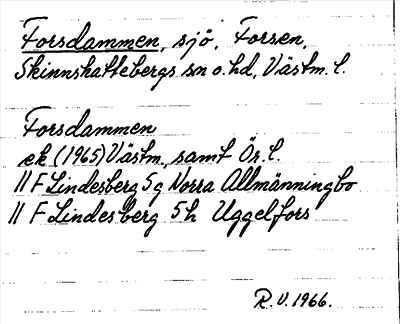 Forsdammen, sjö, Forsen,
Skinnskattebergs sn o. hd, Västm. l.
Forsdammen
ek (1965) Västm., samt Ör. l.
11 F Lindesberg 5g Norra Allmänningbo
11 F Lindesberg 5h Uggelfors
R.V. 1966.